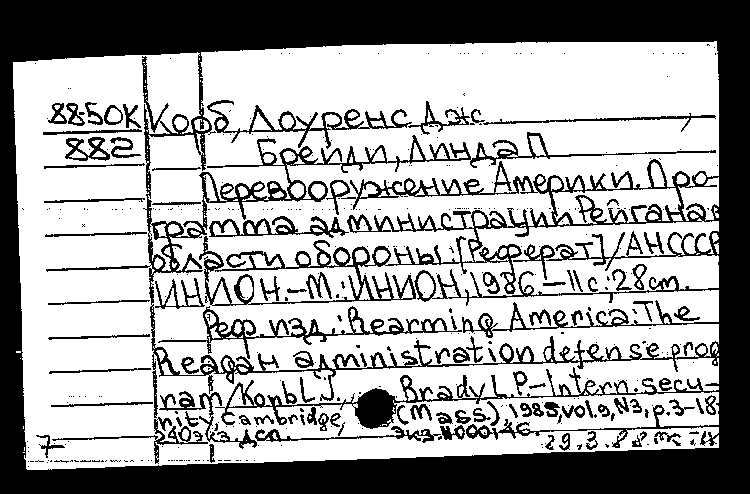 88-50К Корб, Лоуренс Дж ,
882 Брейди, Линда П
Перевооружение Америки. Про-
грамма администрации Рейгана в
области обороны: [Реферат]/АНСССР
ИНИОН.-М.:ИНИОН, 1986.-11с; 28см.
Реф. изд.: Rearming America: The
Reagan administration defense prog
ram/Konbl.J., Brady L.P.-Intern.secu-
rity, Cambridge, (Mass), 1985, vol.9, N3, p.3-18
240экз. дсп. Экз.N000146.
7 29.3.88